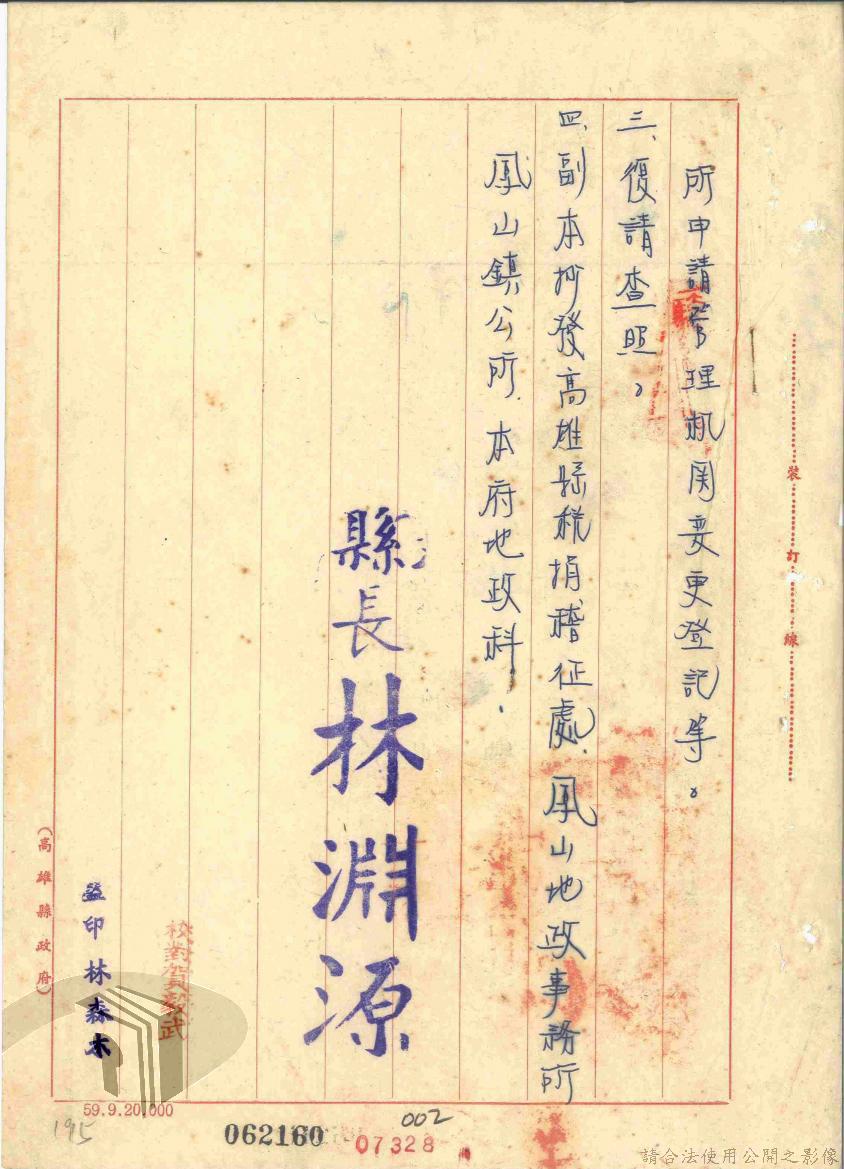 所申請管理机関変更登記等。
三、復請查照。
四、副本抄發高雄縣稅捐稽征處、鳳山地政事務所
鳳山鎮公所、本府地政科。
縣長林淵源
校對賀毅武
監印林森木
裝訂線
(高雄縣政府)
59.9.20,000
195
062160
07328
002
請合法使用公開之影像